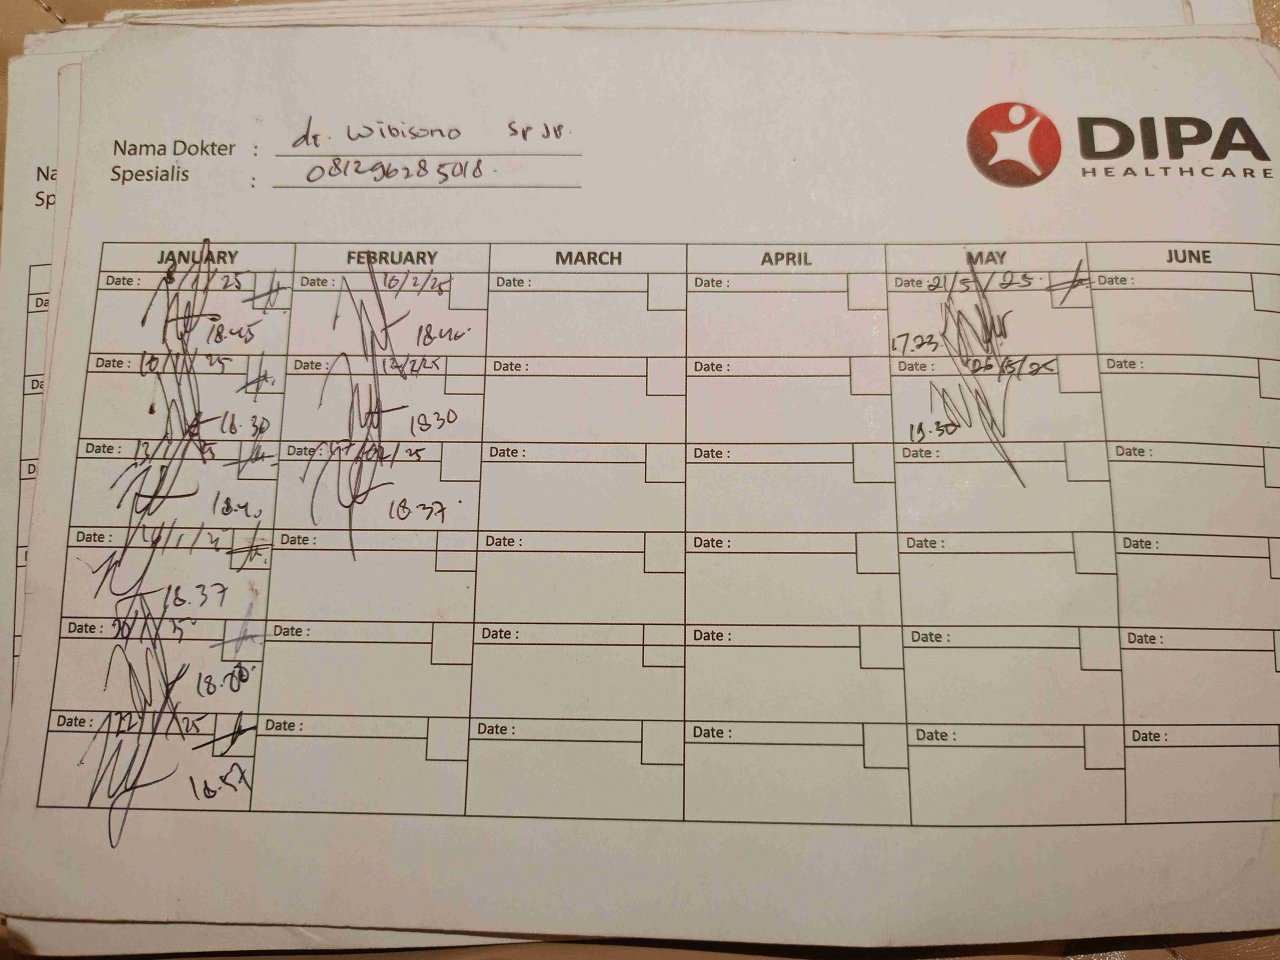 Nama Dokter : dr. Wibisono Sp JP.
Spesialis : 081296285018.
DIPA
HEALTHCARE
Na
Sp
JANUARY FEBRUARY MARCH APRIL MAY JUNE
Date : 25 Date : 10/2/25 Date : Date : Date : 21/5/25 Date :
18.45 18.40 17.23
Date : 10/1/25 Date : 12/2/25 Date : Date : Date : 26/5/25 Date :
18.30 1830 19.30
Date : 13/ Date : 25 Date : Date : Date : Date :
18.40 18.37
Date : Date : Date : Date : Date : Date :
18.37
Date : 30/ Date : Date : Date : Date : Date :
18.00
Date : 22 25 Date : Date : Date : Date : Date :
18.57
Da
Da
D